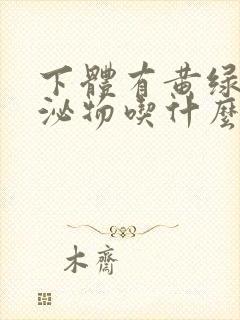 下體有黃綠
泌物喫什麼
木齋